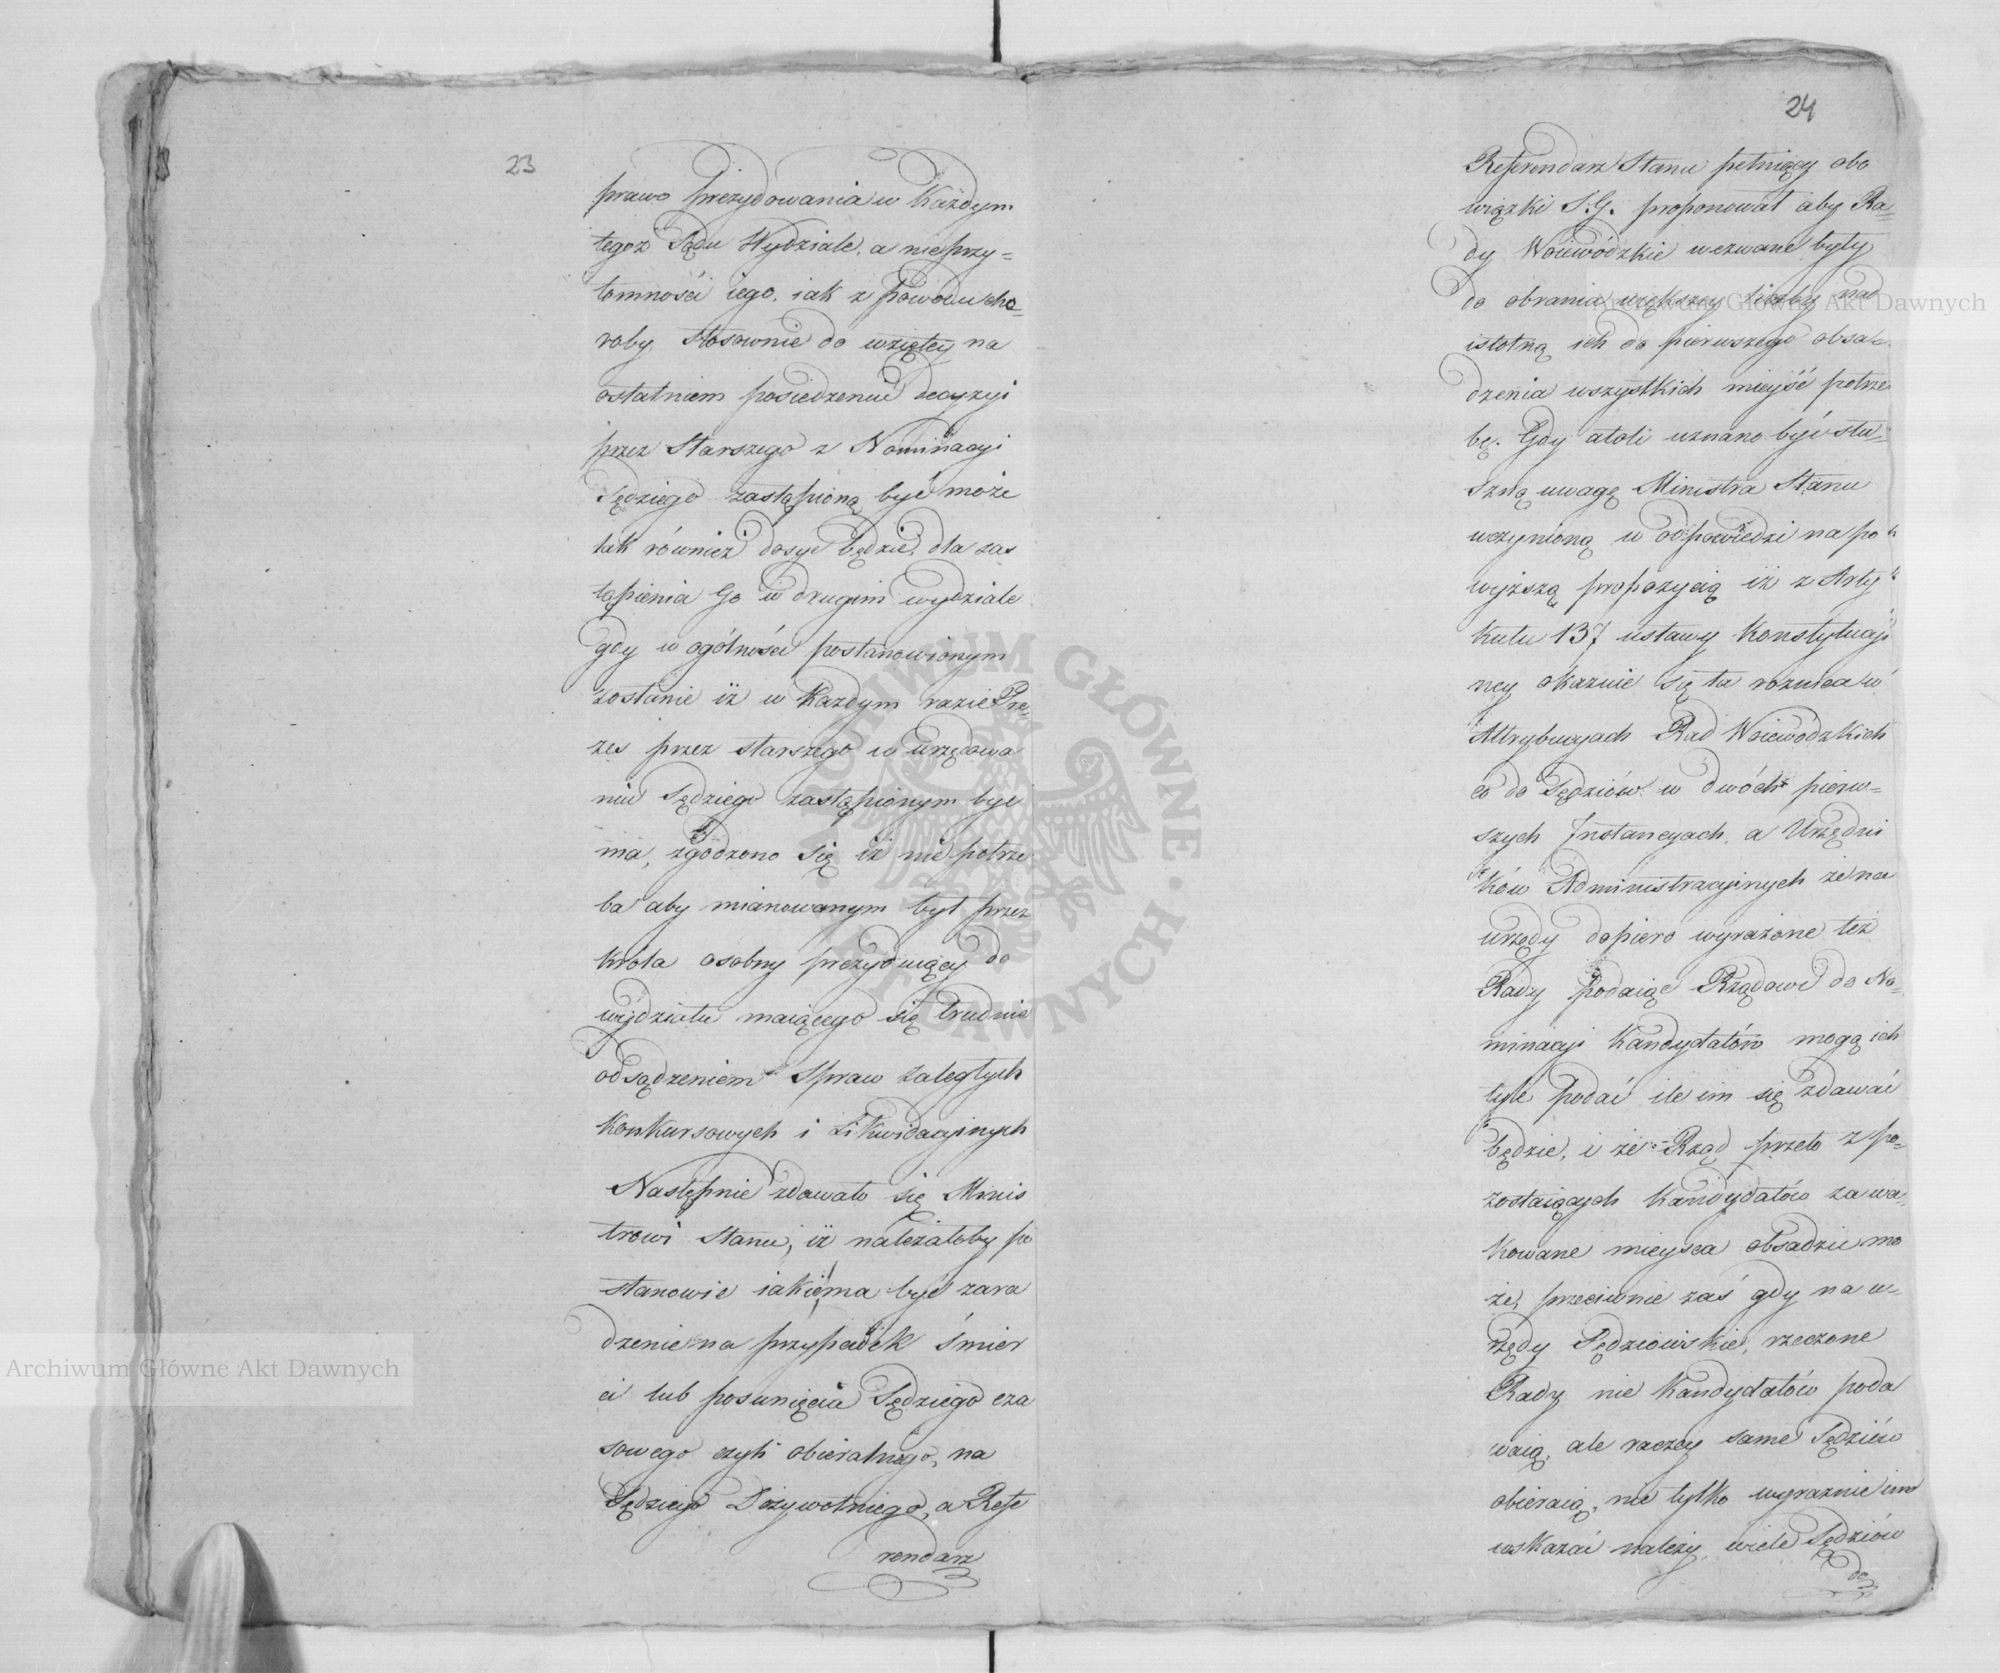 23
prawo prezydowania w Każdym
tegoż Sądu Wydziale, a nieprzy=
tomności iego, iak z powodu cho=
roby, stosownie do wziętey na
ostatniem posiedzeniu decyzyi
przez Starszego z Nominacyi
Sędziego zastąpioną być może
tak również dosyć będzie, dla zas
tąpienia Go w drugim wydziale
gdy w ogólności postanowionym
zostanie iż w Każdym razie Pre=
zes przez starszego w urzędowa
niu Sędziego zastąpionym być
ma, zgodzono się iż nie potrze
ba aby mianowanym był przez
Króla osobny prezyduiący do
wydziału maiącego się trudnić
odsądzeniem Spraw zaległych
Konkursowych i Likwidacyinych
Następnie zdawało się Minis
trowi Stanu, iż należałoby po
stanowić iakie ma być zara
dzenie na przypadek śmier
ci lub posunięcia Sędziego cza
sowego czyli obieralnego, na
Sędziego Dożywotniego, a Refe
rendarz
24
Referendarz Stanu pełniący obo
wiązki S.G. proponował aby Ra=
dy Woiewódzkie wezwane były
do obrania większey liczby nad
istotną ich do pierwszego obsa=
dzenia wszystkich mieyść potrze
bę. Gdy atoli uznano być słu=
szną uwagę Ministra Stanu
uczynioną w odpowiedzi na po
wyższą propozycią iż z Arty
kułu 137 ustawy Konstytucyi
ney okazuie się ta roznica w
Attrybucyach Rad Woiewódzkich
co do Sędziów w dwóch pierw=
szych Instancyach, a Urzędni
ków Administracyinych że na
urzędy dopiero wyrażone też
Rady podaiąc Rządowi do No=
minacyi Kandydatów mogą ich
tyle podać ile im się zdawać
będzie, i że Rząd przeto z po=
zostaiących Kandydatów zawa=
kowane mieysca obsadzić mo
że, przeciwnie zaś gdy na u=
rzędy Sędziowskie, rzeczone
Rady nie Kandydatów poda
waią, ale raczey same Sędziów
obieraią, nie tylko wyraźnie im
wskazać należy, wiele Sędziów
do
Archiwum Główne Akt Dawnych
Archiwum Główne Akt Dawnych
ARCHIWUM GŁÓWNE AKT DAWNYCH